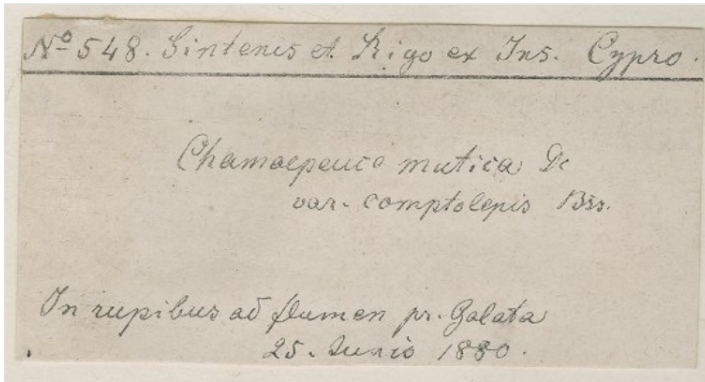 Nº 548. Sintenis et Rigo ex Ins. Cypro.
Chamaepeuce mutica Dc
var. comptolepis Bss.
In rupibus ad flumen pr. Galata
25. Junio 1880.